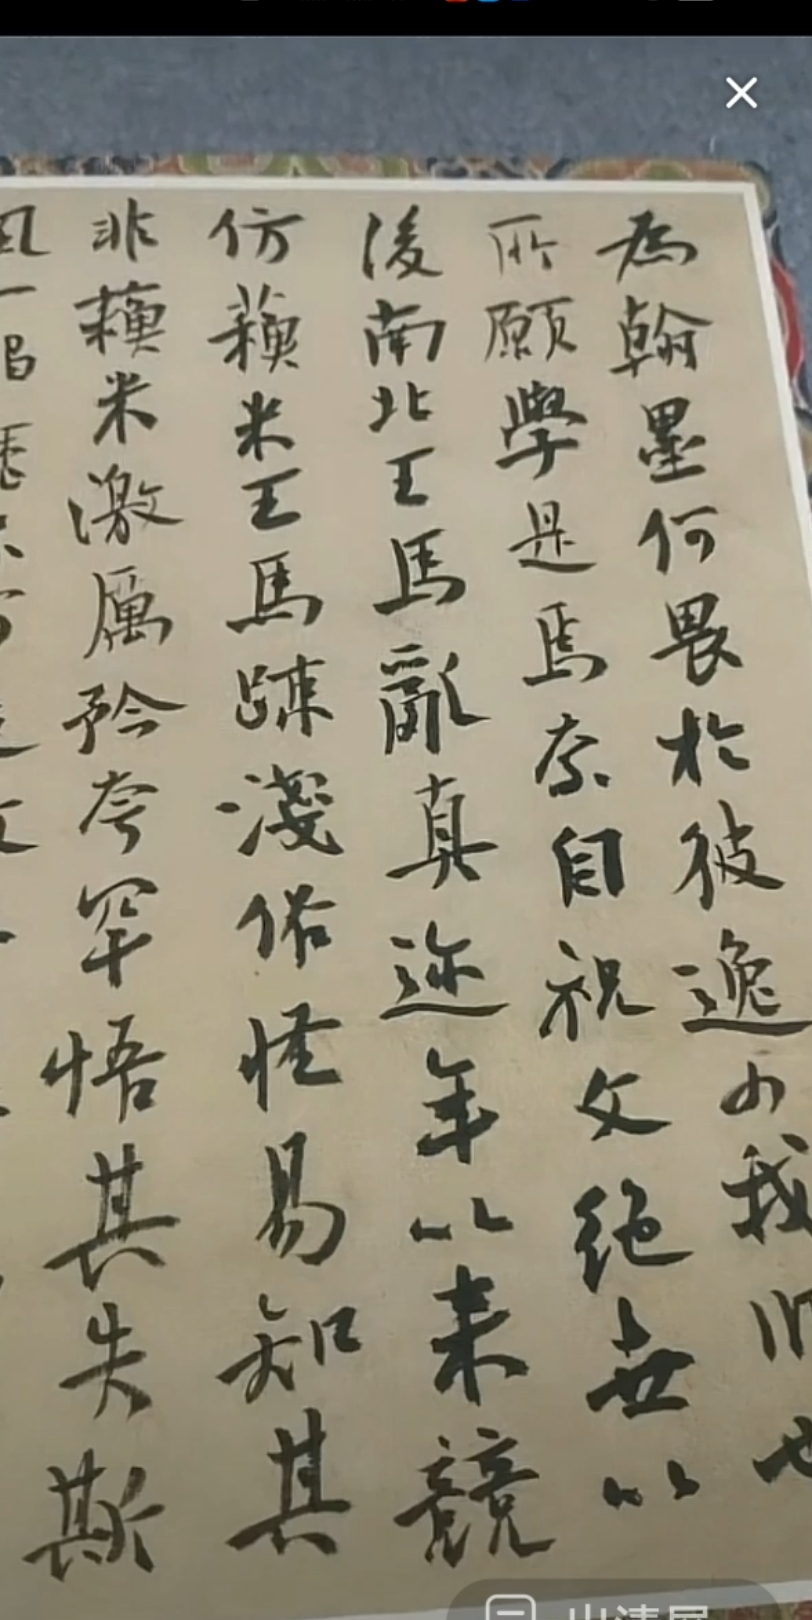 為翰墨何畏於彼逸少我師也
所願學是焉奈自祝文絕無以
後南北王馬亂真迩年以来競
仿蘓米王馬踈淺俗怪易知其
非蘓米激厲矜夸罕悟其失斯